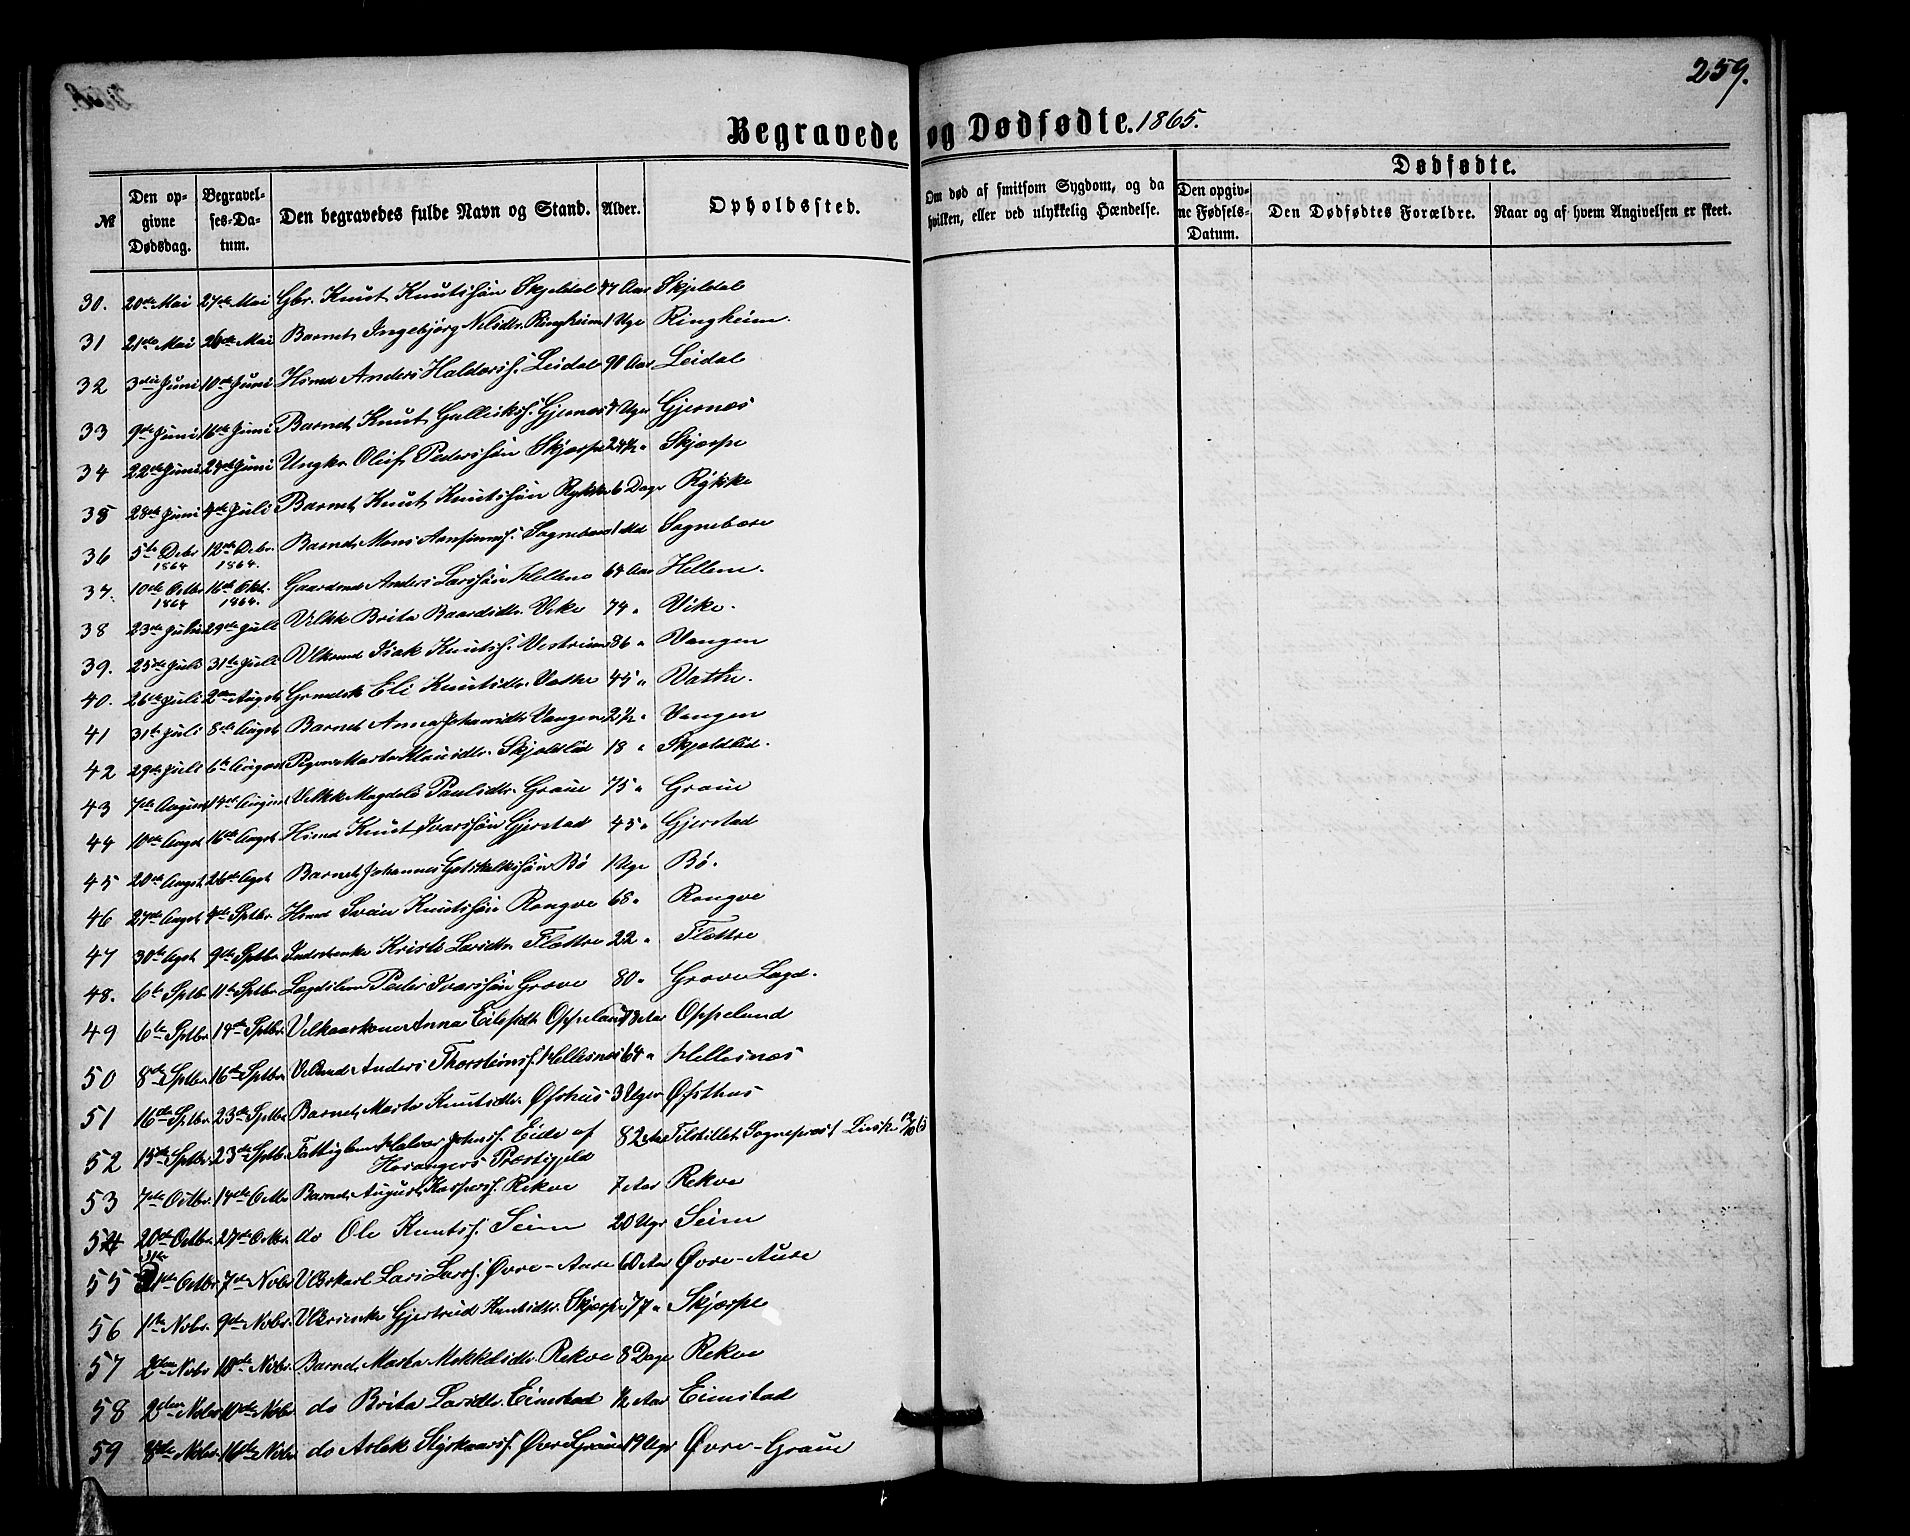 259.
Begravede og Dødfødte. 1865.
Dødfødte.
№ Den opgivne Dødsdag. Begravelses-Datum. Den begravedes fulde Navn og Stand. Alder. Opholdssted. Om død af smitsom Sygdom, og da hvilken, eller ved ulykkelig Hændelse. Den opgivne Fødsels-Datum. Den Dødfødtes Forældre. Naar og af hvem Angivelsen er skeet.
30. 20de Mai 27de Mai Gbr. Knut Knutsøn Skjeldal 47 Aar Skjeldal
31 21de Mai 26de Mai Barnet Ingebjørg Nilsdtr. Ringheim 1 Uge Ringheim.
32 3die Juni 10de Juni Hsmd Anders Haldorss. Leidal 90 Aar Leidal
33 9de Juni 16de Juni Barnet Knut Gulleikss. Gjernæs 4 Uger Gjernæs
34 22de Juni 29de Juni Ungkr Oleif Pederssøn Skjærpe 24½ " Skjærpe
35 28de Juni 4de Juli Barnet Knut Knutssøn Rykke 6 Dage Rykke
36 5te Debr 1864 12de Debr. 1864. Barnet Mons Aanfinns. Sognebære 1 Md Sognebære
37. 10de Octbr 1864 16de Okt. 1864. Gaardmd Anders Larssøn Hellene 64 Aar Hellene.
38 23de Juli 29de Juli Velkk Brita Baardsdtr. Vike 74 " Vike.
39. 25de Juli 31te Juli Vlkrmd Isak Knutss. Vestreim 86 " Vangen
40. 26de Juli 2den Augst Grmdsk Eli Knutsdtr. Vathe 45 " Vathe.
41 31te Juli 8de Augst Barnet Anna Johannsdtr Vangen 2½ " Vangen
42 29de Juli 6te August Pigen Marta Klausdtr. Skjeldlid 18 " Skjeldlid.
43 7de August 14de August Velkk Magdela Paulsdtr. Graue 75 " Graue
44 10de Augst 16de Augst Hsmd Knut Ivarssøn Gjerstad 45 " Gjerstad
45 20de Augst 26de Agst Barnet Johannes Godskalkssøn Bø 1 Uge Bø.
46 27de Augst 4de Sptbr. Hsmd Svein Knutssøn Rongve 68 " Rongve
47 30te Agst 9de Sptbr Inderstenke Kristi Larsdtr. Flættre 22 " Flættre
48. 6te Sptbr 11te Sptbr Lægdslem Peder Ivarssøn Grove 80 " Grove Lægd.
49 6te Sptbr 14de Sptbr. Velkaarskone Anna Eilefsdtr. Oppeland 73 Aar Oppelund
50 8de Sptbr 16de Sptbr Velkmd Anders Thorsteinss. Hellesnæs 64 " Hellesnæs
51 16de Sptbr 23de Sptbr Barnet Marta Knutsdtr. Øfsthus 3 Uger Øfsthus
52 15de Sptbr. 23de Sptbr. Fattiglem Halvor Johnss. Eide af 82 Aar Tilstillet Sogneprest
Hosangers Præstegjeld
53 7de Octbr 14de Octbr Barnet August Kaspers. Rekve 7 Aar Rekve
54 20de Octbr 27de Octbr. do Ole Knutss. Seim 20 Ugr Seim
55 31te Octbr. 7de Nobr Vlkrkarl Lars Larss. Øvre-Aure 60 Aar Øvre-Aure
56 1te Nobr. 9de Nobr. Vlkrienke Gjertrud Knutsdtr. Skjærpe 77 " Skjærpe
57 2den Nobr 10de Nobr. Barnet Marta Mekkelsdtr. Rekve 8 Dage Rekve
58 2den Nobr 10de Nobr do Brita Larsdtr. Eimstad ½ Aar Eimstad
59 8de Nobr 16de Nobr do Aslak Styrkaarss. Øvre-Graue 19 Ugr Øvre-Graue